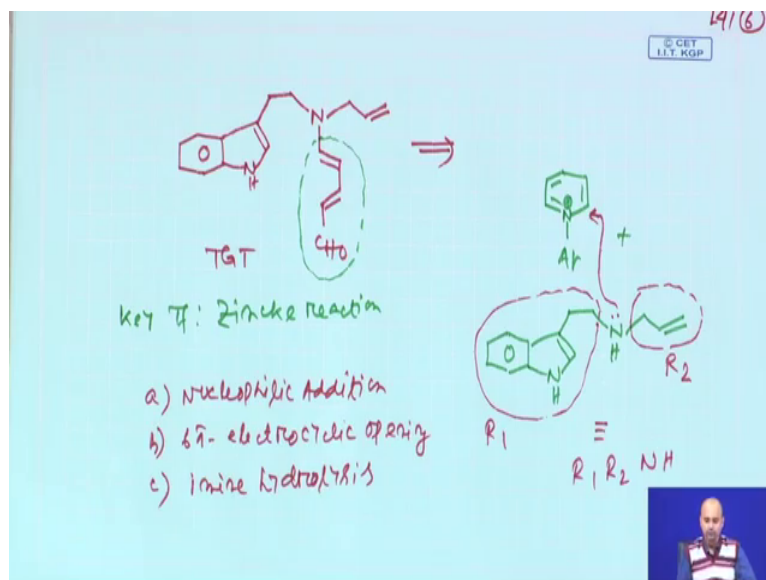 L41 6
© CET
I.I.T. KGP
N
N
H
TGT
CHO
N
Ar
+
N
H
N
H
R1
R2
≡
R1 R2 NH
Key π: Zincke reaction
a) Nucleophilic Addition
b) 6π- electrocyclic opening
c) imine hydrolysis